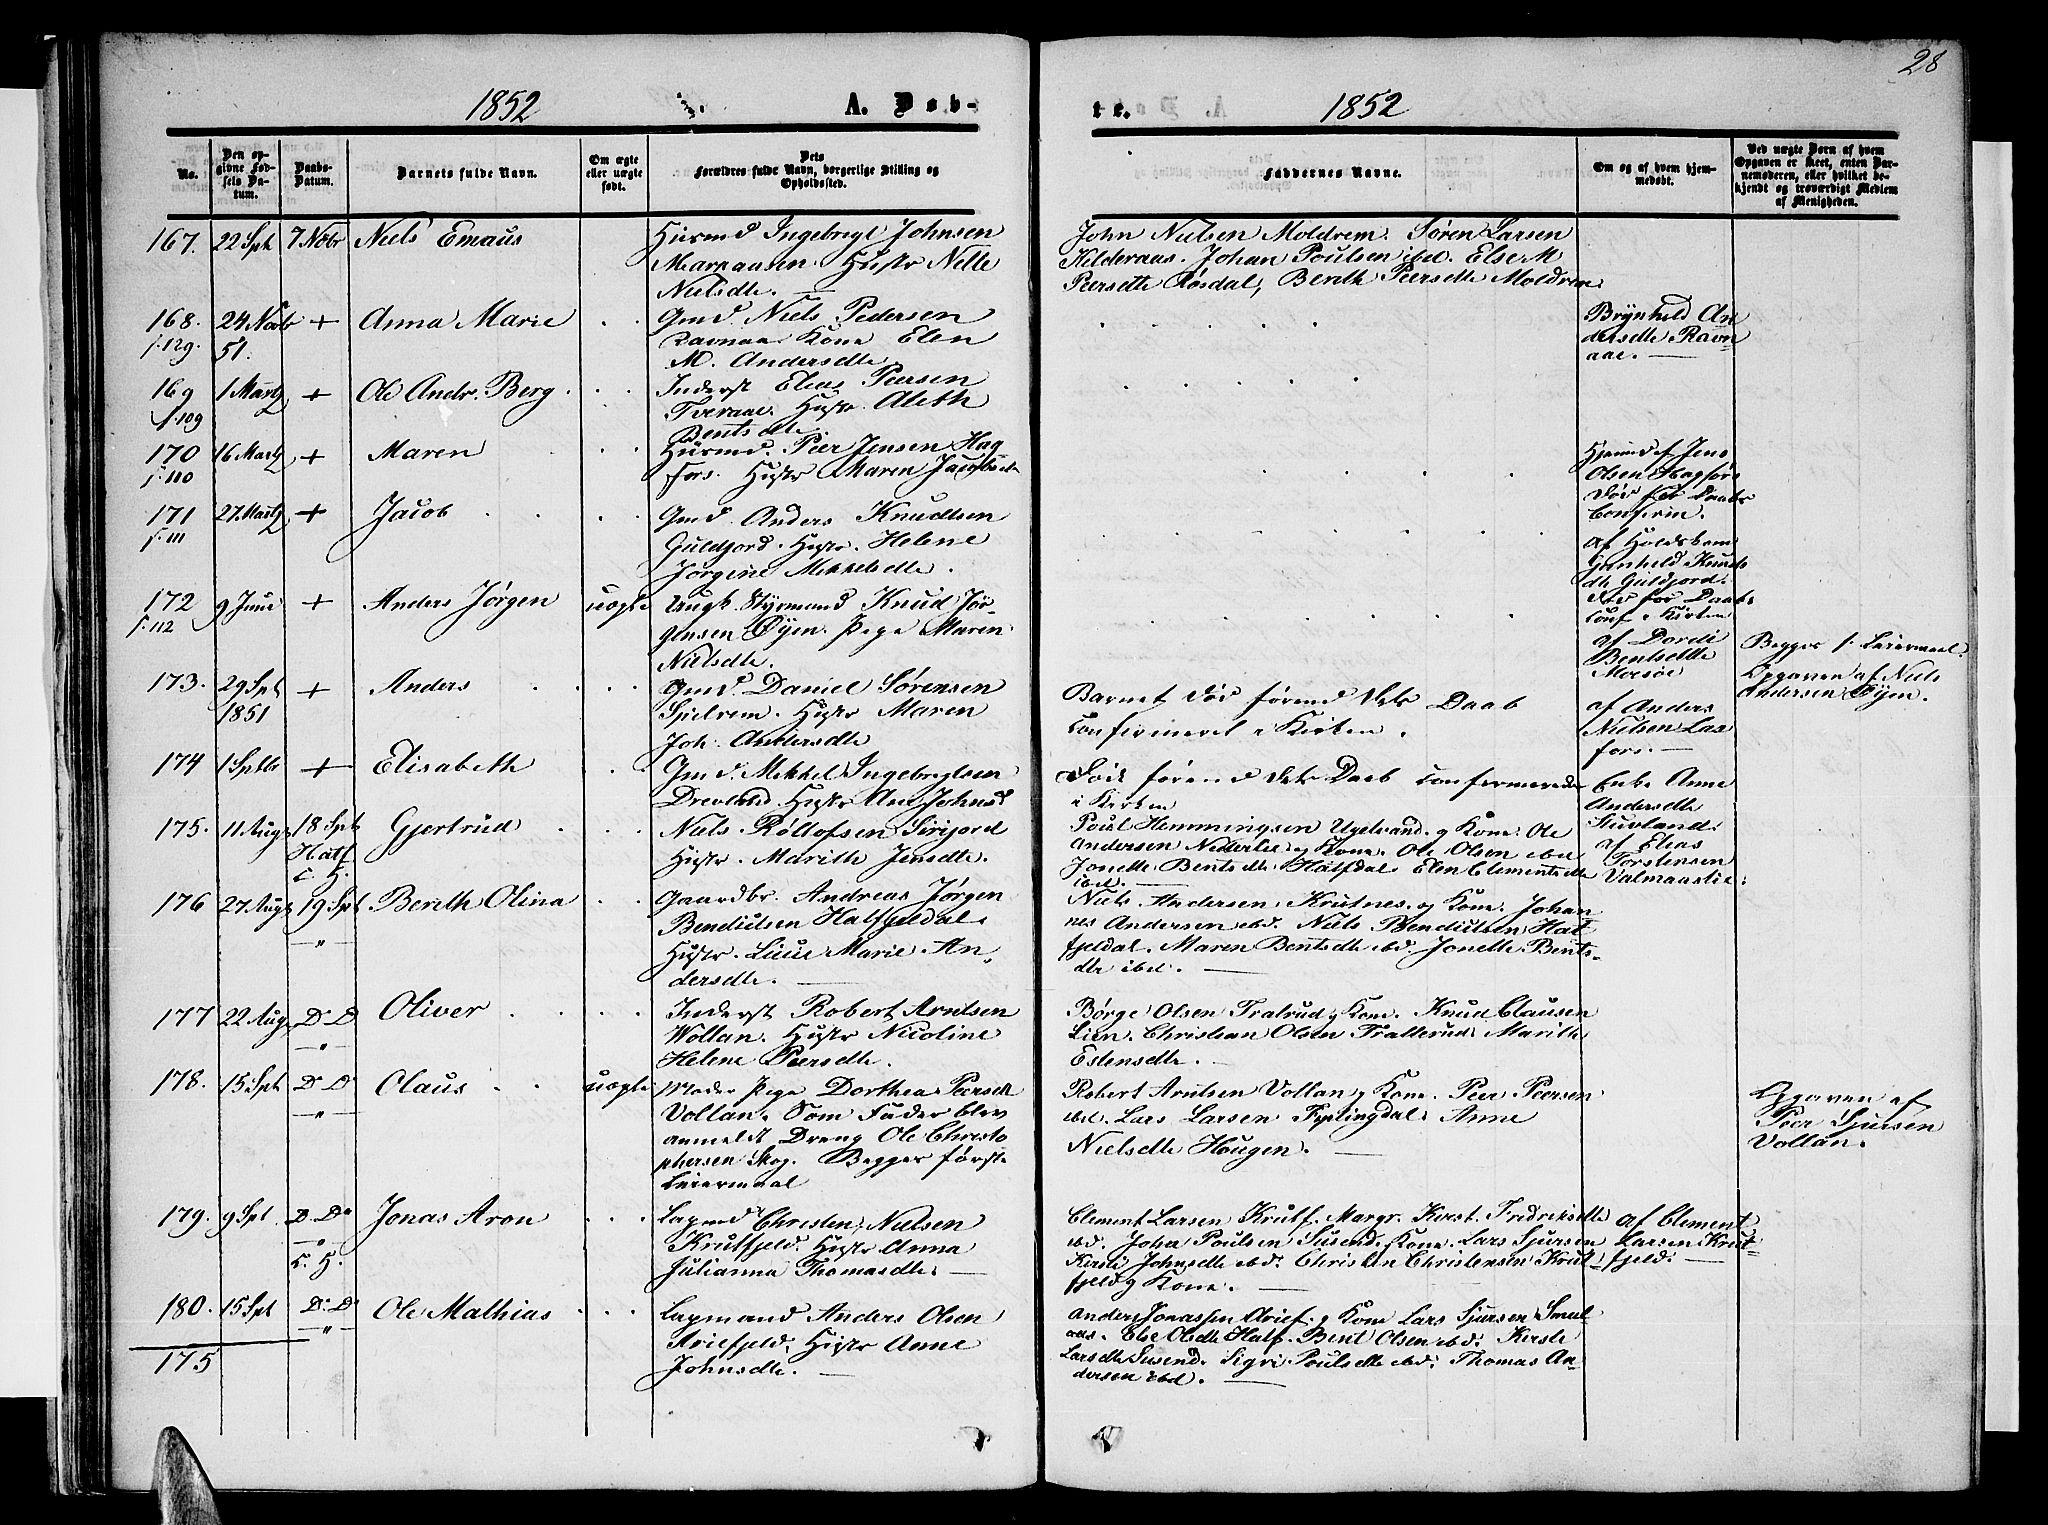 28
1852
A. Døb-
te.
1852
No.
Den op-
givne Fød-
sels Da-
tum.
Daabs-
Datum.
Barnets fulde Navn.
Om ægte
eller uægte
født.
Dets
Forældres fulde Navn, borgerlige Stilling og
Opholdssted.
Faddernes Navne.
Om og af hvem hjem-
medøbt.
Ved uægte Børn af hvem
Opgaven er skeet, enten Bar-
nemoderen, eller hvilket be-
kjendt og troværdigt Medlem
af Menigheden.
167. 22 Spt 7 Nobr Niels Emaus
Huusmd Ingebrigt Johnsen
Marhausen. Hustr Nille
Nielsdtr.
John Nielsen Moldrem. Søren Larsen
Kilderaas. Johan Poulsen ibd. Else M
Peersdtr Røsdal, Berith Peersdtr Moldrem
168. 24 Novb + Anna Marie
f. 129. 51.
Gmd. Niels Pedersen
Ravnaa Kone Elen
M. Andersdtr
Brynhild An
dersdtr Ravn
aae.
169 1 Marts + Ole Andr. Berg
f. 109
Inderst Elias Peersen
Tveraae. Hustr. Aleth
Bentsdtr
170 16 Marts + Maren
f. 110
Huusmd. Peer Jensen Hag
fors. Hustr Maren Jacobsdtr
Hjemmd af Jens
Olsen Hagfors
Død før Daabs
Confirm.
171 27 Marts + Jacob
f. 111
Gmd. Anders Knudtsen
Guldfjord. Hustr. Helene
Jørgine Mikkelsdtr.
af Holdskone
Gunhild Knuds
dtr Guldfjord.
Død før Daabs
conf i Kirken
172 9 Juni + Anders Jørgen uægte
f. 112
Ungk. Styrmand Knud Jør-
gensen Øyen. Pige Maren
Nielsdtr.
af Dordi
Bentsdtr
Mosøe
Begges 1. Leiermaal.
Opgaven af Niels
Andersen Øyen.
173. 29 Spt + Anders
1851
Gmd. Daniel Sørensen
Spielrem. Hustr Maren
Joh. Andersdtr
Barnet død førend dets Daab
confirmeret i Kirken.
af Anders
Nielsen Lax
fors.
174 1 Septbr + Elisabeth
Gmd. Mikkel Ingebrigtsen
Drevland. Hustr Ane Johnsd
Død førend dets Daab confirmerede
i Kirken
Enke Anne
Andersdtr
Stuvland.
175. 11 Aug 18 Spt Gjertrud
Hatf
c. H.
Niels Røllofsen Sirijord
Hustr. Marith Jensdtr.
Poul Hemmingsen Ugelvand og Kone. Ole
Andersen Nederlie og Kone. Ole Olsen ibd
Jonette Bentsdtr Hatfdal Elen Clementsdtr
ibd.
af Elias
Torstensen
Valmaaslie.
176 27 Aug 19 Spt Berith Olina
"
Gaardbr. Andreas Jørgen
Bendictsen Hatfjeldal.
Hustr. Lucie Marie An-
dersdtr.
Niels Andersen Krutnes. og Kone. Johan
nes Andersen ibd. Niels Bendictsen Hat
fjeldal. Maren Bentsdtr ibd. Jonette Bents-
dtr ibd.
177 22 Aug D. D Oliver
"
Inderst Robert Arntsen
Vollan. Hustr Nicoline
Helene Peersdtr.
Børge Olsen Tralrud og Kone. Knud Clausen
Lien. Christian Olsen Trallerud. Marith
Estensdtr.
178. 15 Spt D. D Olaus uægte
"
Moder Pige Dorthea Peersdtr
Vollan. Som Fader blev
anmeldt Dreng Ole Christo
phersen Skog. Begges første
Leiermaal
Robert Arntsen Vollan og Kone. Peer Peersen
ibd. Lars Larsen Fiplingdal. Anne
Nielsdtr Hougen.
Opgaven af
Peer Sjursen
Vollan.
179. 9 Spt D. D Jonas Aron
"
c. H.
Lapmd Christen Nielsen
Krutfjeld. Hustr Anna
Julianna Thomasdtr.
Clement Larsen Krutf. Margr. Kirst. Fredriksdtr
ibd. John Poulsen Susend. Kone. Lars Sjursen
Kirsti Johnsdtr ibd. Christen Christensen Krut-
fjeld og Kone.
af Clement
Larsen Krut-
fjeld.
180. 15 Spt D. D Ole Mathias
"
Lapmand Anders Olsen
Ariefjeld. Hustr Anne
Johnsdtr.
Anders Jonassen Arief. og Kone Lars Sjursen Smul
aas. Else Olsdtr Hatf. Bent Olsen ibd. Kirste
Larsdtr Susend. Sigri Poulsdtr ibd. Thomas An-
dersen ibd.
175